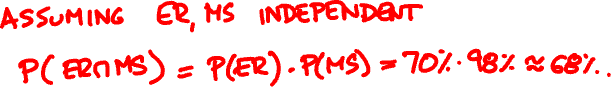 ASSUMING ER, MS INDEPENDENT
P(ER∩MS) = P(ER)·P(MS) = 70%·98% ≈ 68%..